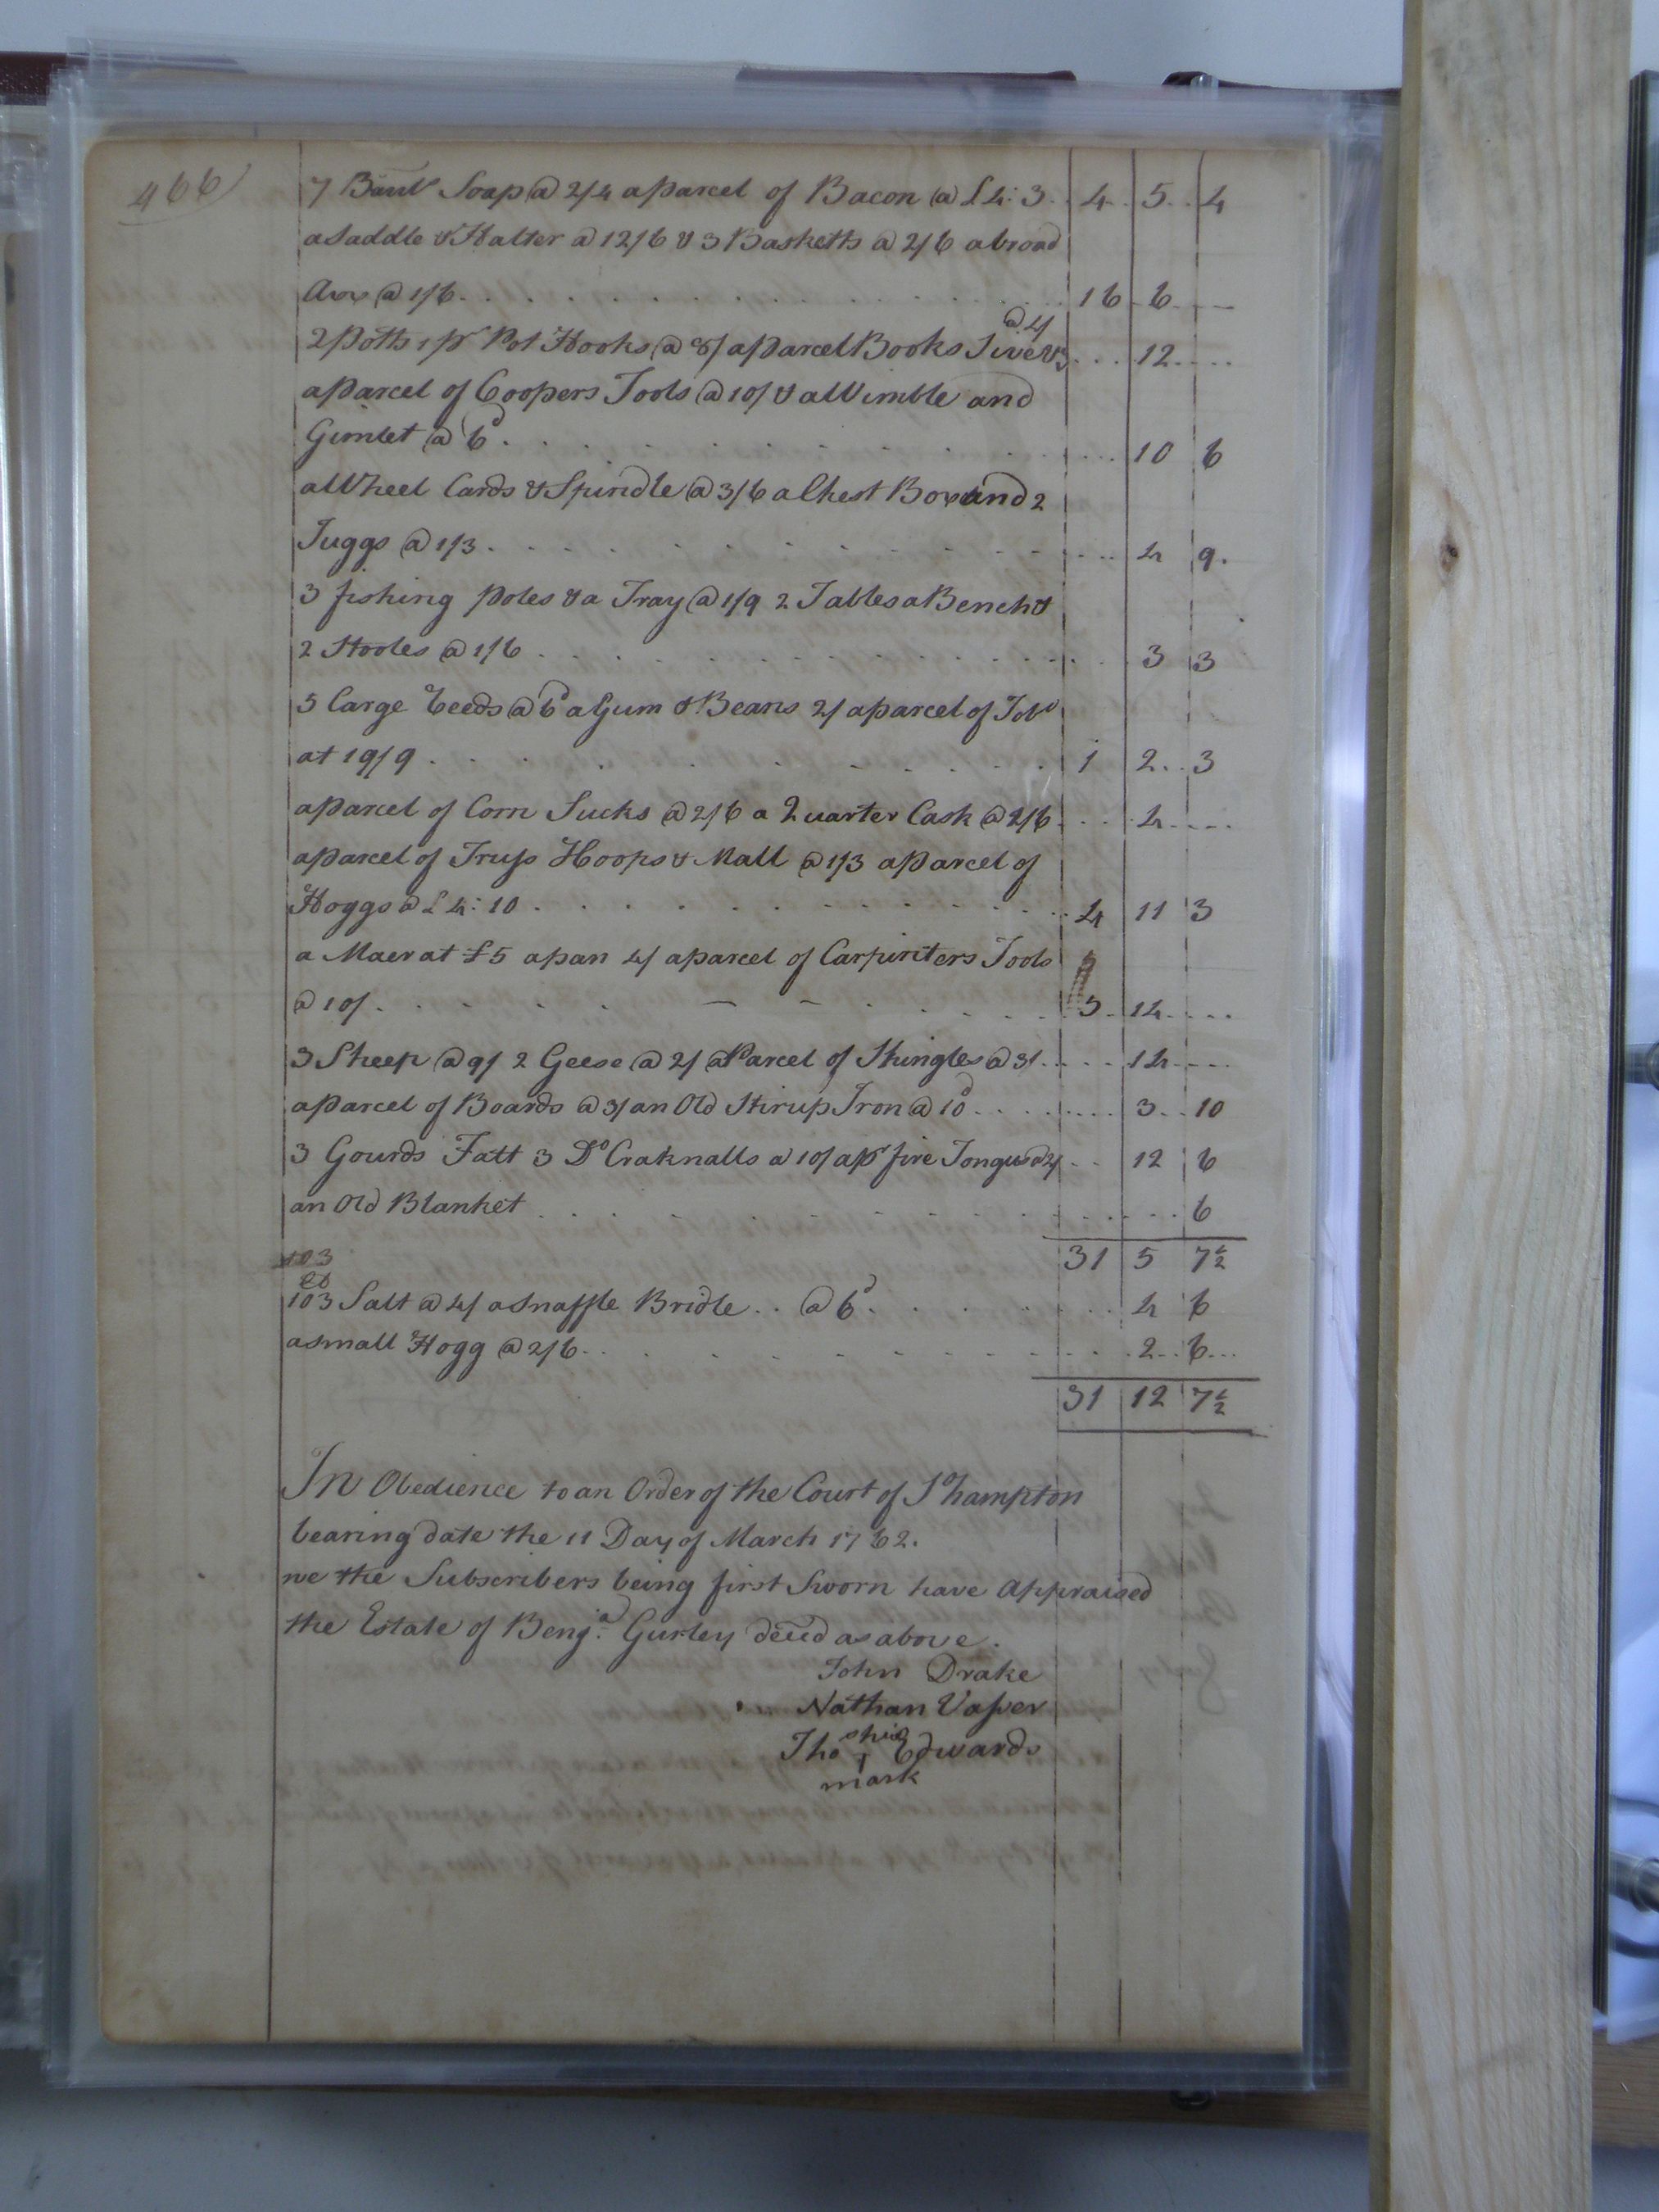 466
7 Soap @ 2/4 a Parcel of Bacon @ £4:3.. 4.. 5.. 4
a Saddle & Halter @ 12/6 & 3 Basketts @ 2/6 a broad
Axe @ 1/6 . . . 16 . 6 . —
@ 4/
2 Potts 1 pr Pot Hooks @ 8/ a parcel Books . . . 12 . . .
a parcel of Coopers Tools @ 10/ & a Wimble and
Gimlet @ 6d . . . 10 6
a Wheel Cards & Spindle @ 3/6 a Chest Box and 2
Juggs @ 1/3 . . . 4 9.
3 fishing Poles & a Tray @ 1/9 2 Tables a Bench &
2 Stooles @ 1/6 . . . 3 3
5 Large @ 6d a Gum & Beans 2/ a parcel of Tobo
at 19/9 . . . 1 2 . . 3
a parcel of Corn Sucks @ 2/6 a Quarter Cask @ 2/6 . . . 4 . . .
a parcel of Truss Hoops & Mall @ 1/3 a parcel of
Hoggs @ £4:10 . . . 4 11 3
a Maer at £5 a pan 4/ a parcel of Carpinters Tools
@ 10/ . . . 5 . 14 . . .
3 Sheep @ 9/ 2 Geese @ 2/ a Parcel of Shingles @ 3/ . . . 14 . . .
a parcel of Boards @ 3/ an Old Stirup Iron @ 10d . . . 3 . . 10
3 Gourds Fatt 3 Do Craknalls @ 10/ a pr fire Tongues @ 2/ . . 12 6
an Old Blanket . . . 6
31 5 7½
103
lb
103 Salt @ 4/ a Snaffle Bridle . . @ 6d . . . 4 6
a small Hogg @ 2/6 . . . 2 . . 6 . . .
31 12 7½
In Obedience to an Order of the Court of So hampton
bearing date the 11 Day of March 1762.
we the Subscribers being first Sworn have Appraised
the Estate of Benja. Gurley decd as above.
John Drake
Nathan Vasser
his
Thos + Edwards
mark